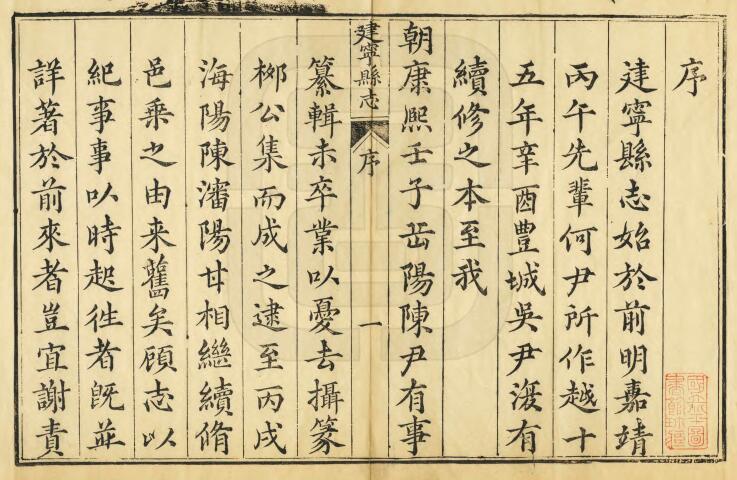 序
建寧縣志始於前明嘉靖
丙午先輩何尹所作越十
五年辛酉豊城吳尹湲有
續修之本至我
朝康熙壬子岳陽陳尹有事
建寧縣志
序
一
纂輯未卒業以憂去攝篆
栁公集而成之逮至丙戌
海陽陳瀋陽甘相繼續脩
邑乗之由来舊矣顧志以
紀事事以時起徃者既並
詳著於前來者豈宜謝責